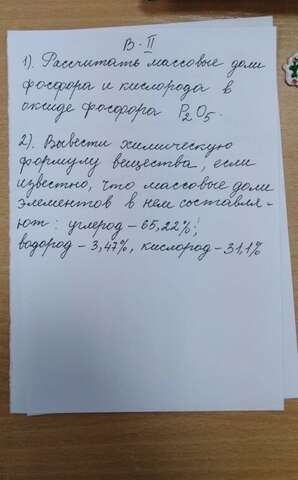 В-II
1). Рассчитать массовые доли
фосфора и кислорода в
оксиде фосфора P₂O₅.
2). Вывести химическую
формулу вещества, если
известно, что массовые доли
элементов в нем составля-
ют: углерод - 65,22%;
водород - 3,47%, кислород - 31,1%